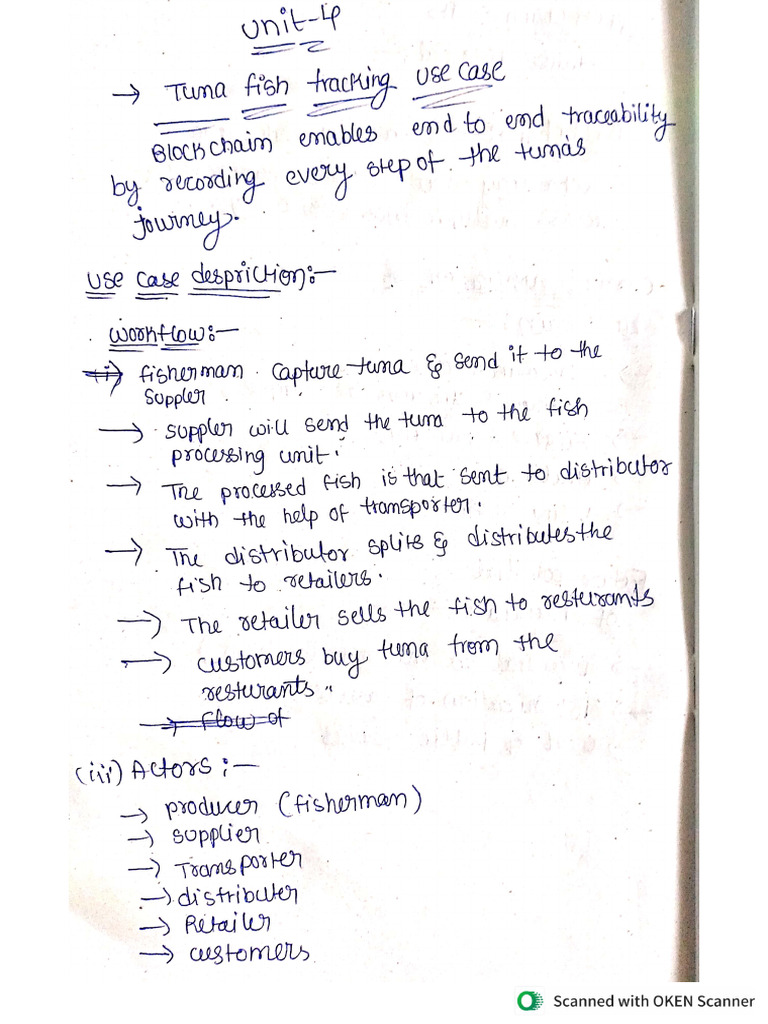 Unit-4
→ Tuna fish tracking use case
Blockchain enables end to end traceability
by recording every step of the tunas
journey.
use case despriction:-
workflow:-
→ fisherman capture tuna & send it to the
suppler.
→ suppler will send the tuna to the fish
processing unit.
→ The processed fish is that sent to distributor
with the help of transporter.
→ The distributor splits & distributes the
fish to retailers.
→ The retailer sells the fish to resturants
→ customers buy tuna from the
resturants.
→ flow of
(iii) Actors :-
→ producer (fisherman)
→ supplier
→ Transporter
→ distributer
→ Retailer
→ customers
Scanned with OKEN Scanner